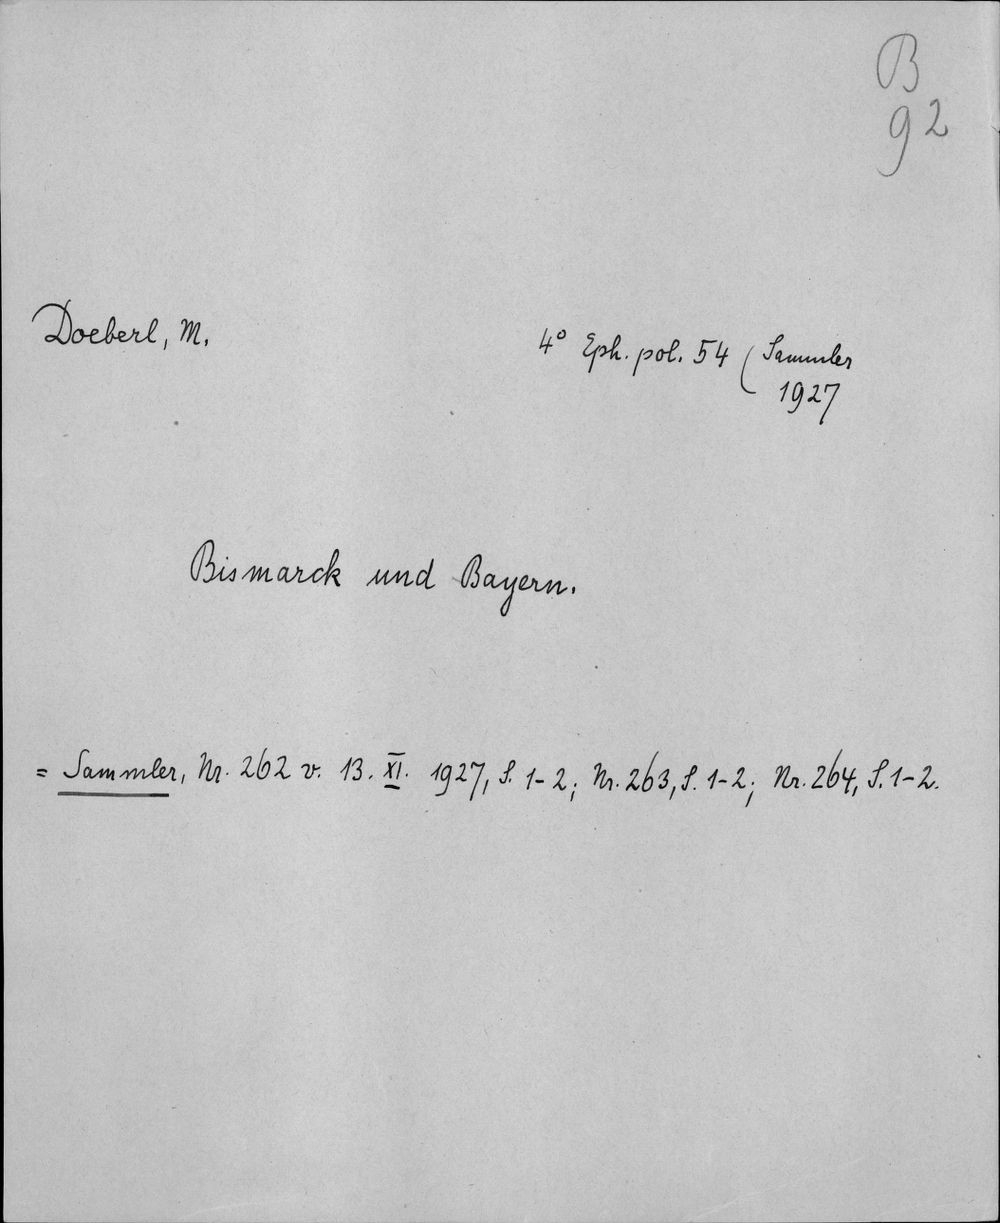 B
92
Doeberl, M.
4° Eph. pol. 54 (Sammler
1927
Bismarck und Bayern.
= Sammler, Nr. 262 v. 13. XI. 1927, S. 1-2; Nr. 263, S. 1-2; Nr. 264, S. 1-2.